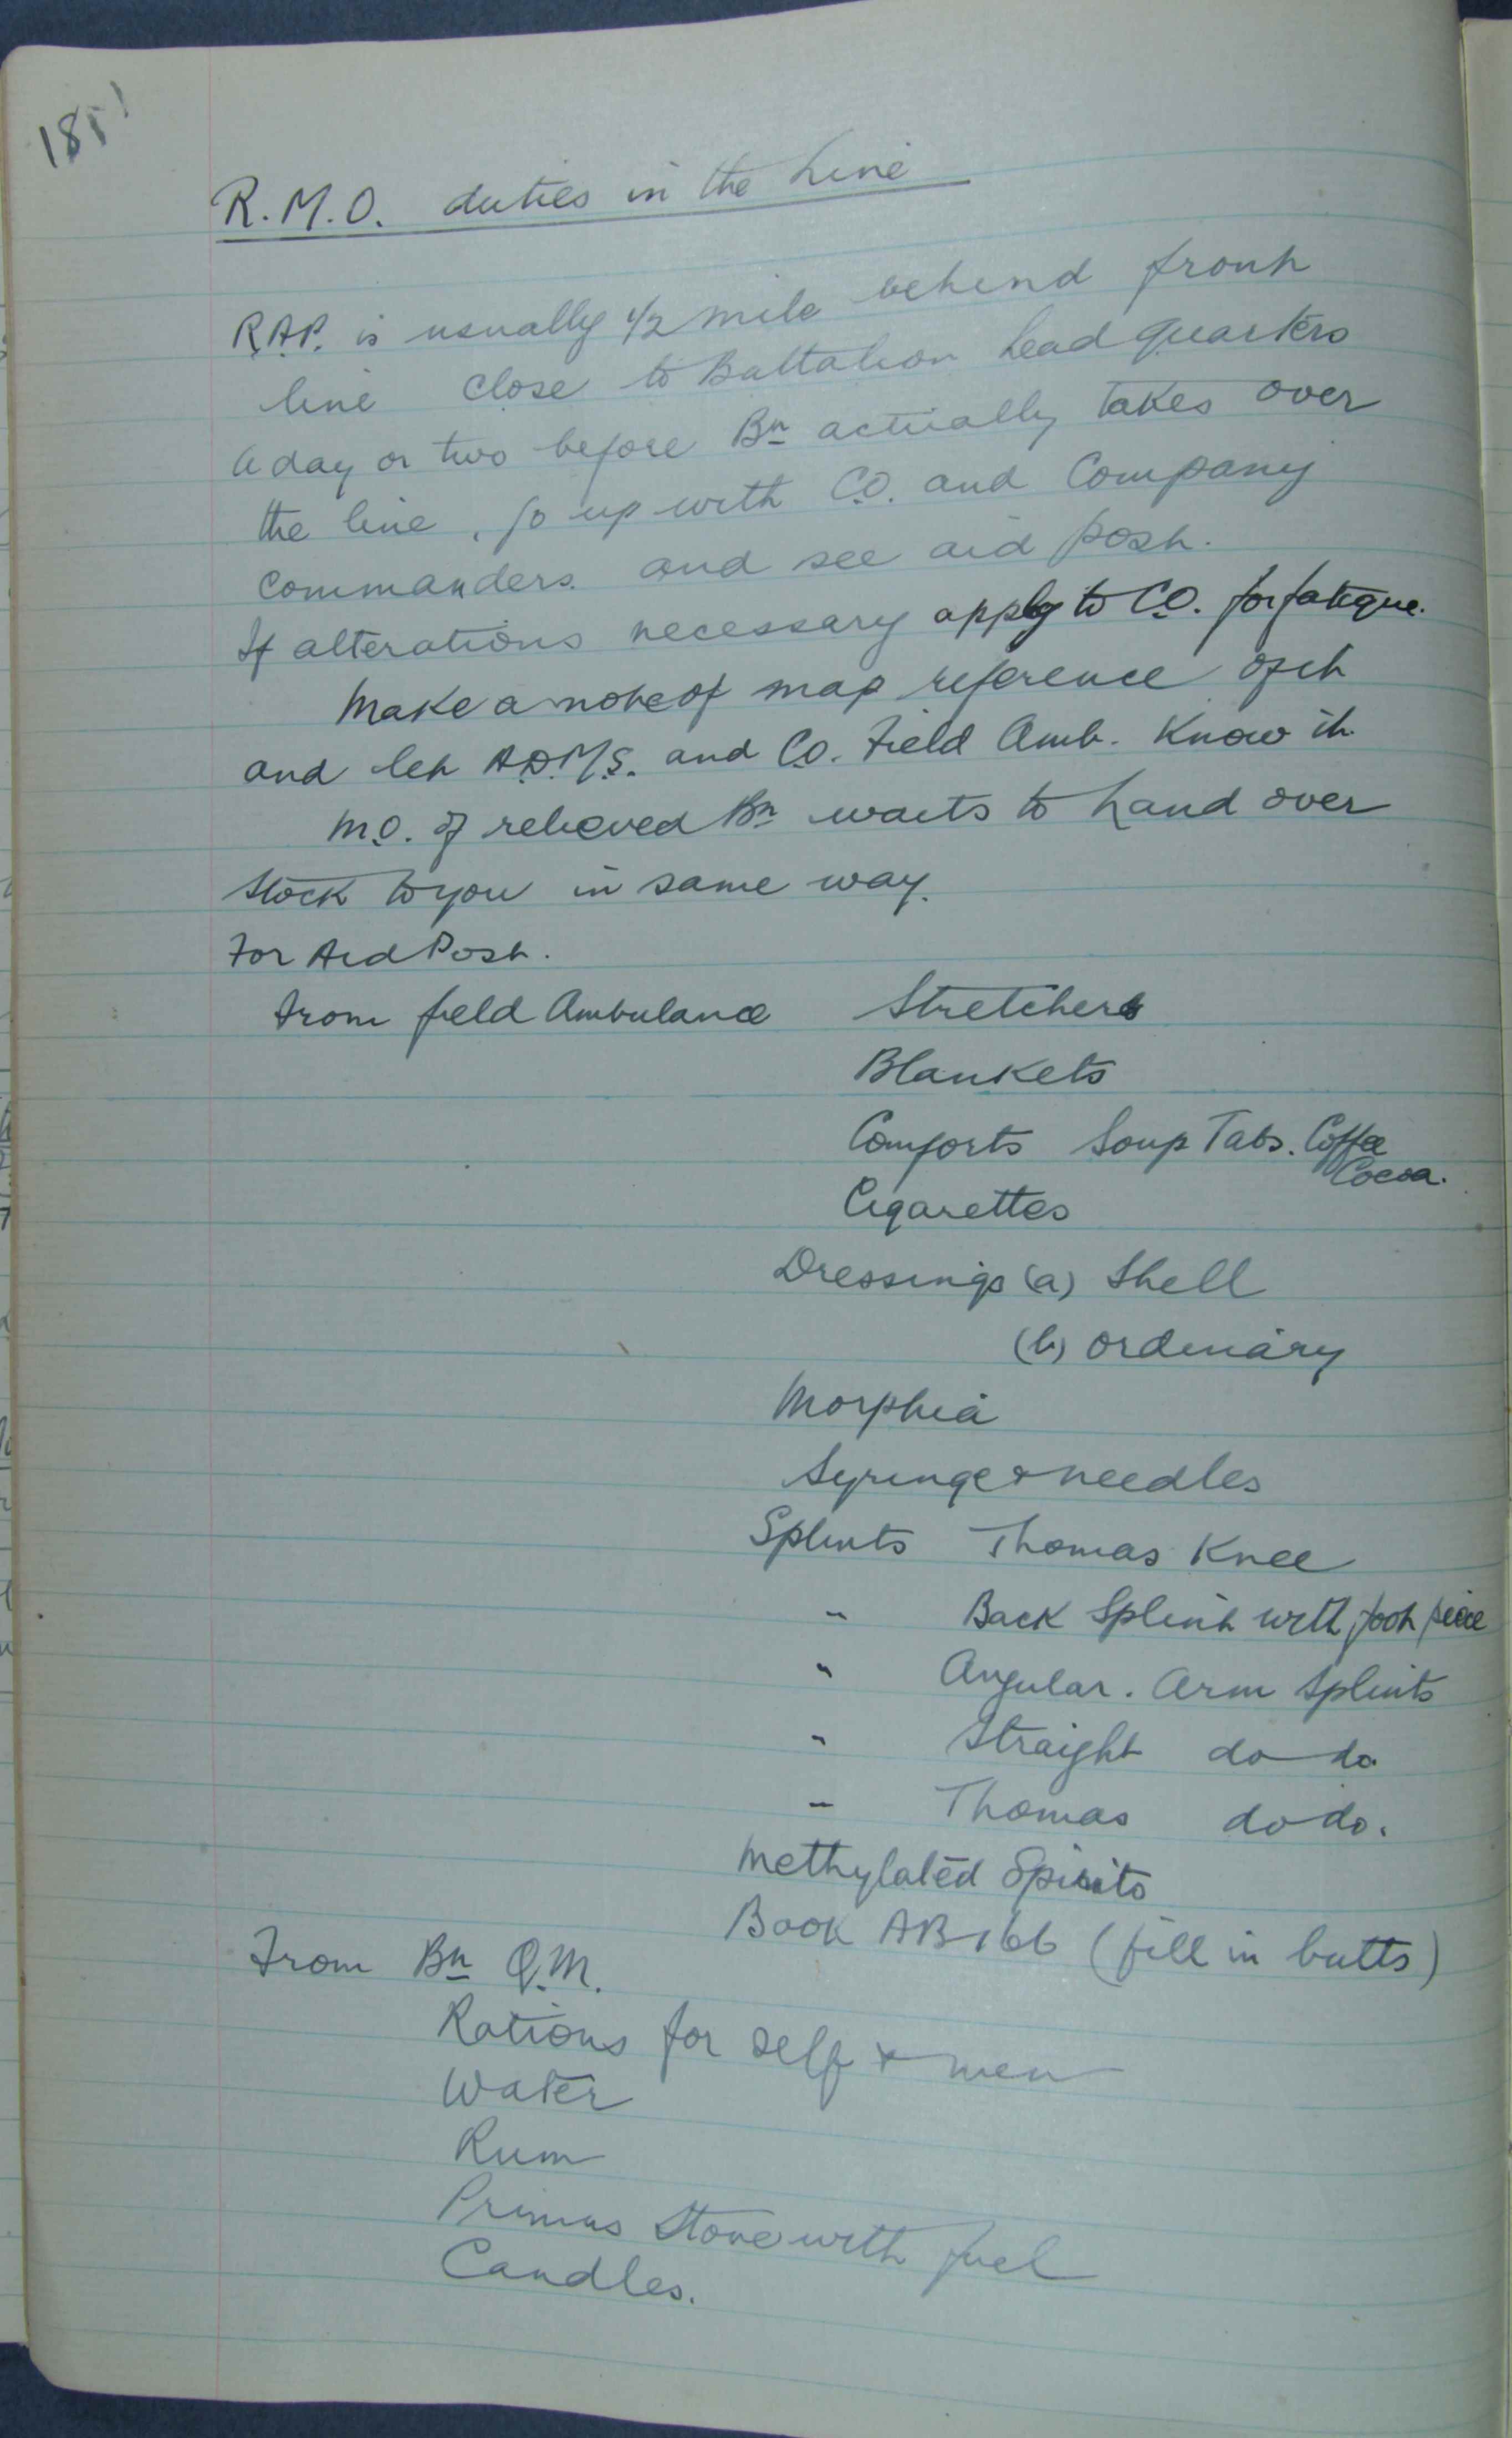 185
R.M.O. duties in the Line
R.A.P. is usually 1/2 mile behind front
line close to Battalion head quarters
A day or two before Bn actually takes over
the line, go up with C.O. and Company
Commanders. and see aid post.
If alterations necessary apply to C.O. for fatigue.
Make a note of map reference of it
and let A.D.M.S. and C.O. Field Amb. know it.
M.O. of relieved Bn waits to hand over
stock to you in same way.
For Aid Post.
From field Ambulance Stretchers
Blankets
Comforts Soup Tabs. Coffee
Cocoa.
Cigarettes
Dressings (a) Shell
(b) ordinary
Morphia
Syringe & needles
Splints Thomas Knee
" Back Splint with foot piece
" Angular. Arm Splints
" Straight do do
" Thomas do do.
Methylated Spirits
Book AB 166 (fill in butts)
From Bn Q.M.
Rations for self & men
Water
Rum
Primus Stove with fuel
Candles.